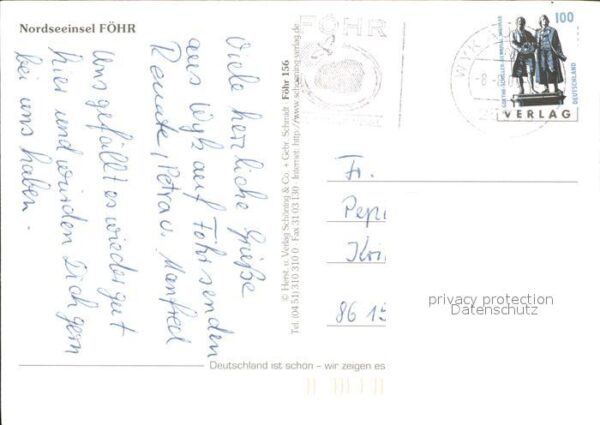 Nordseeinsel FÖHR
Viele herzliche Grüße
aus Wyk auf Föhr senden
Renate, Petra u. Manfred
Uns gefällt es wieder gut
hier und würden Dich gern
bei uns haben.
© Herst. u. Verlag Schöning & Co. + Gebr. Schmidt Föhr 156
Tel. (04 51) 310 310 0 · Fax 31 03 130 · Internet: http://www.schoening-verlag.de
FÖHR
WYK AUF
100
GOETHE-SCHILLER-DENKMAL WEIMAR
DEUTSCHLAND
VERLAG
Fr.
Pepi
86 15
privacy protection
Datenschutz
Deutschland ist schön – wir zeigen es